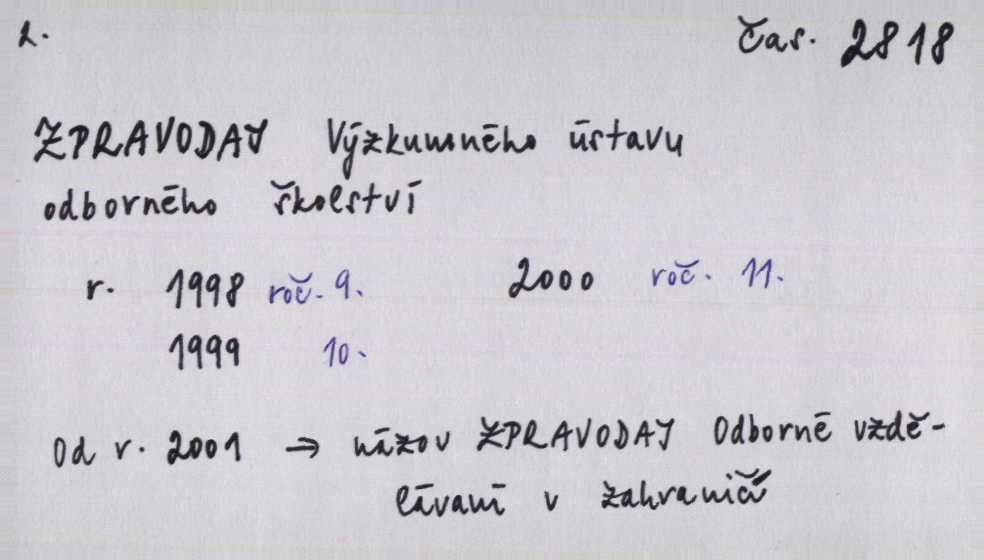 2. Čas. 2818
ZPRAVODAJ Výzkumného ústavu
odborného školství
r. 1998 roč. 9. 2000 roč. 11.
1999 10.
Od r. 2001 → názov ZPRAVODAJ Odborné vzdě-
lávaní v zahraničí